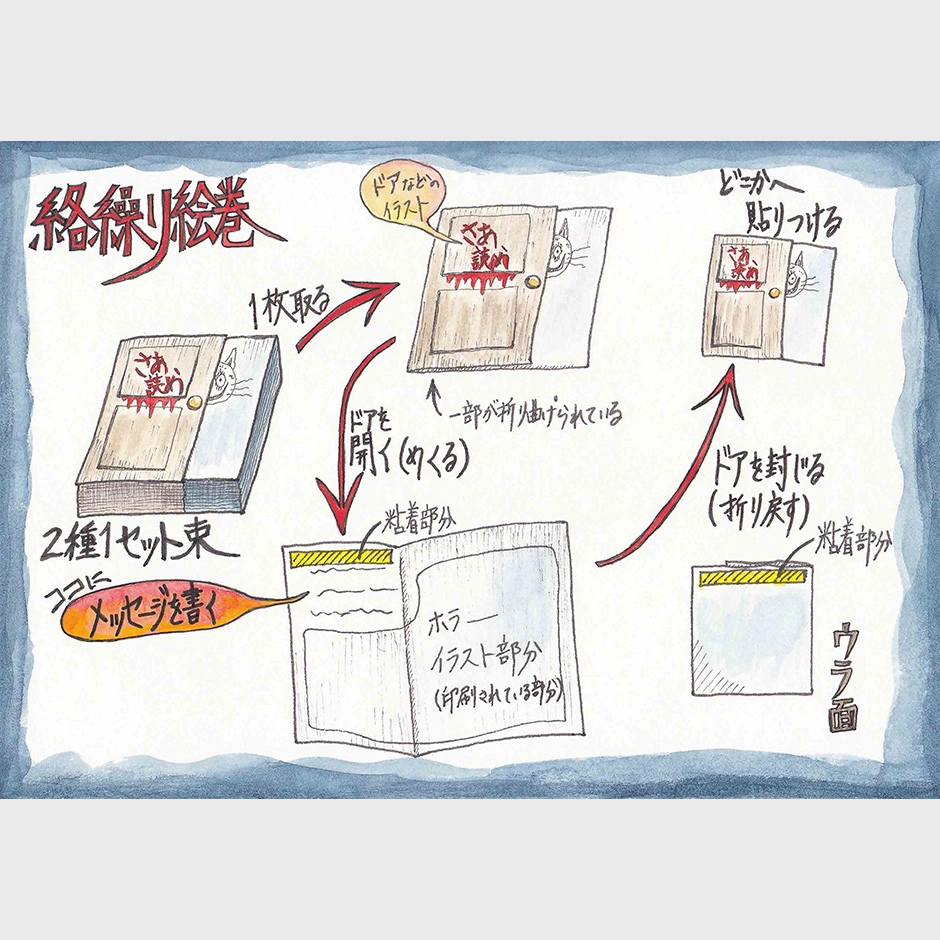 絡繰り絵巻
ドアなどの
イラスト
さあ、
読め、
1枚取る
一部が折り曲げられている
さあ、
読め、
2種1セット束
ドアを
開く(めくる)
粘着部分
ココに
メッセージを書く
ホラー
イラスト部分
(印刷されている部分)
どこかへ
貼りつける
さあ、
読め、
ドアを封じる
(折り戻す)
粘着部分
ウラ面